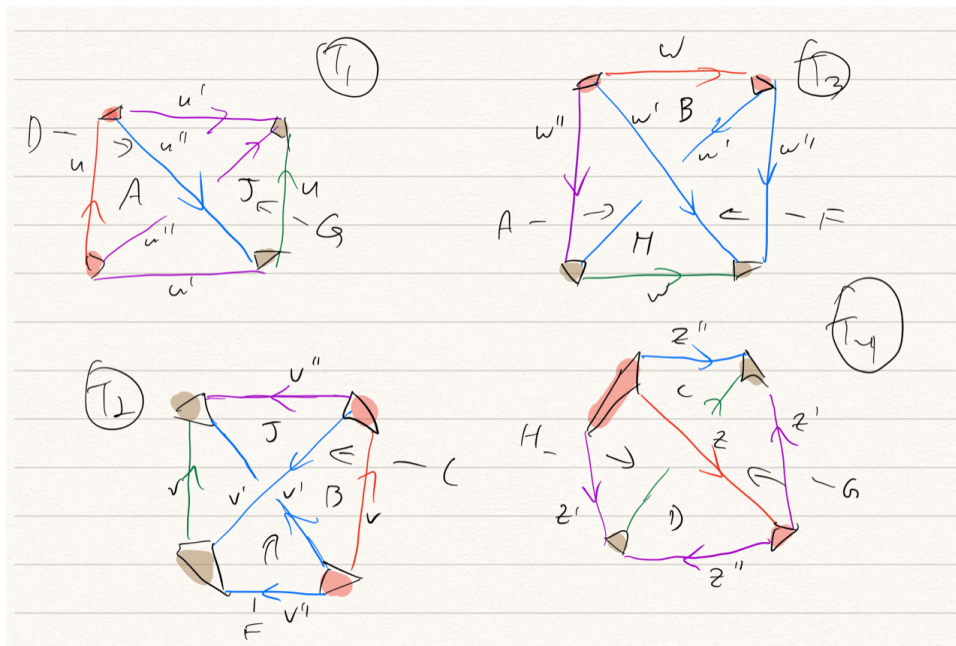 T₁
u'
D
u
u''
A
J
u
G
u''
u'
T₃
w
B
w''
w'
w'
w''
A
F
H
w
T₂
v''
J
C
v
v'
v'
B
v
F
v''
T₄
z''
C
z'
H
z
G
z'
D
z''